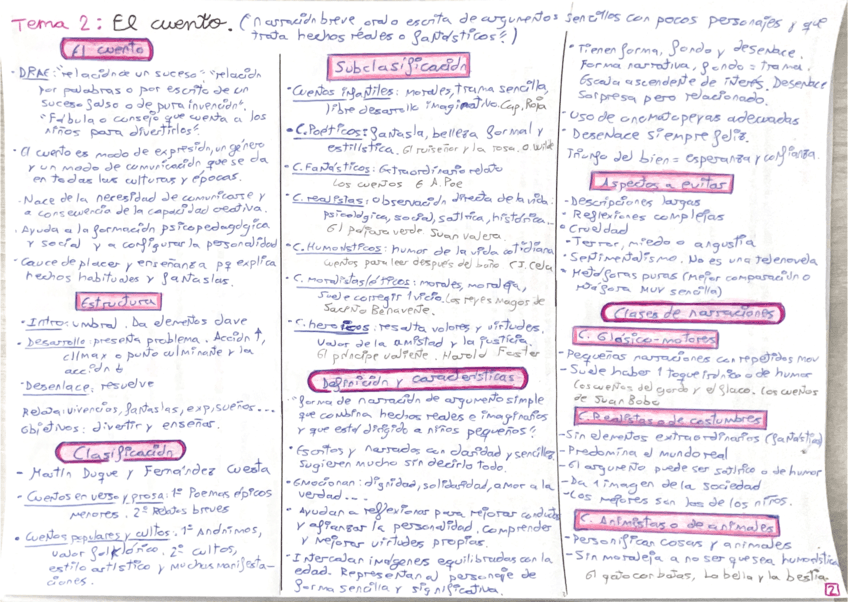 Tema 2: El cuento. (Narración breve oral o escrita de argumentos sencillos con pocos personajes y que
trata hechos reales o fantásticos".)
El cuento
- DRAE: "relación de un suceso" "relación
por palabras o por escrito de un
suceso falso o de pura invención".
"Fábula o consejo que cuenta a los
niños para divertirlos".
- El cuento es modo de expresión, un género
y un modo de comunicación que se da
en todas las culturas y épocas.
- Nace de la necesidad de comunicarse y
a consecuencia de la capacidad creativa.
- Ayuda a la formación psicopedagógica
y social y a configurar la personalidad
- Cauce de placer y enseñanza pq explica
hechos habituales y fantasías.
Estructura
- Intro: umbral. Da elementos clave
- Desarrollo: presenta problema. Acción ↑,
clímax o punto culminante y la
acción ↓
- Desenlace: resuelve
Relata: vivencias, fantasías, exp, sueños...
Objetivos: divertir y enseñar.
Clasificación
- Martín Duque y Fernández Cuesta
- Cuentos en verso y prosa: 1º Poemas épicos
menores. 2º Relatos breves
- Cuentos populares y cultos: 1º Anónimos,
valor folklórico. 2º cultos,
estilo artístico y muchas manifesta-
ciones.
Subclasificación
- Cuentos infantiles: morales, trama sencilla,
libre desarrollo imaginativo. Cap. Roja
- C. Poéticos: fantasía, belleza formal y
estilística. El ruiseñor y la rosa. O Wilde
- C. Fantásticos: Extraordinario relato
Los cuentos E A. Poe
- C. realistas: Observación directa de la vida:
psicológica, social, satírica, histórica...
El pájaro verde Juan Valera.
- C. Humorísticos: humor de la vida cotidiana
cuentos para leer después del baño C J. Cela
- C. moralistas/éticos: morales, moraleja,
suele corregir 1 vicio. Los reyes Magos de
Jacinto Benavente.
- C. heroicos: resalta valores y virtudes.
Valor de la amistad y la justicia.
El príncipe valiente. Harold Foster
Definición y características
"forma de narración de argumento simple
que combina hechos reales e imaginarios
y que está dirigido a niños pequeños".
- Escritos y narrados con claridad y sencillez
Sugieren mucho sin decirlo todo.
- Emocionan: dignidad, solidaridad, amor a la
verdad...
- Ayudar a reflexionar para mejorar conducta
y afianzar la personalidad. Comprender
y mejorar virtudes propias.
- Intercalan imágenes equilibradas con la
edad. Representan al personaje de
forma sencilla y significativa.
- Tienen forma, fondo y desenlace.
Forma narrativa, fondo = trama.
Escala ascendente de interés. Desenlace
Sorpresa pero relacionado.
- Uso de onomatopeyas adecuadas
- Desenlace siempre feliz.
Triunfo del bien = esperanza y confianza.
Aspectos a evitar
- Descripciones largas
- Reflexiones complejas
- Crueldad
- Terror, miedo o angustia
- Sentimentalismo. No es una telenovela
- Metáforas puras (mejor comparación o
metáfora muy sencilla)
Clases de narraciones
C. Glósico-motores
- Pequeñas narraciones con repetidos mov
- Suele haber 1 toque irónico o de humor
Los cuentos del gordo y el flaco. Los cuentos
de Juan Bobo
C. Realistas o de costumbres
- Sin elementos extraordinarios (fantástico)
- Predomina el mundo real
- El argumento puede ser satírico o de humor
- Da 1 imagen de la sociedad
- Los mejores son los de los niños.
C. Animistas o de animales
- Personifican cosas y animales
- Sin moraleja a no ser que sea humorística
El gato con botas, La bella y la bestia.
2